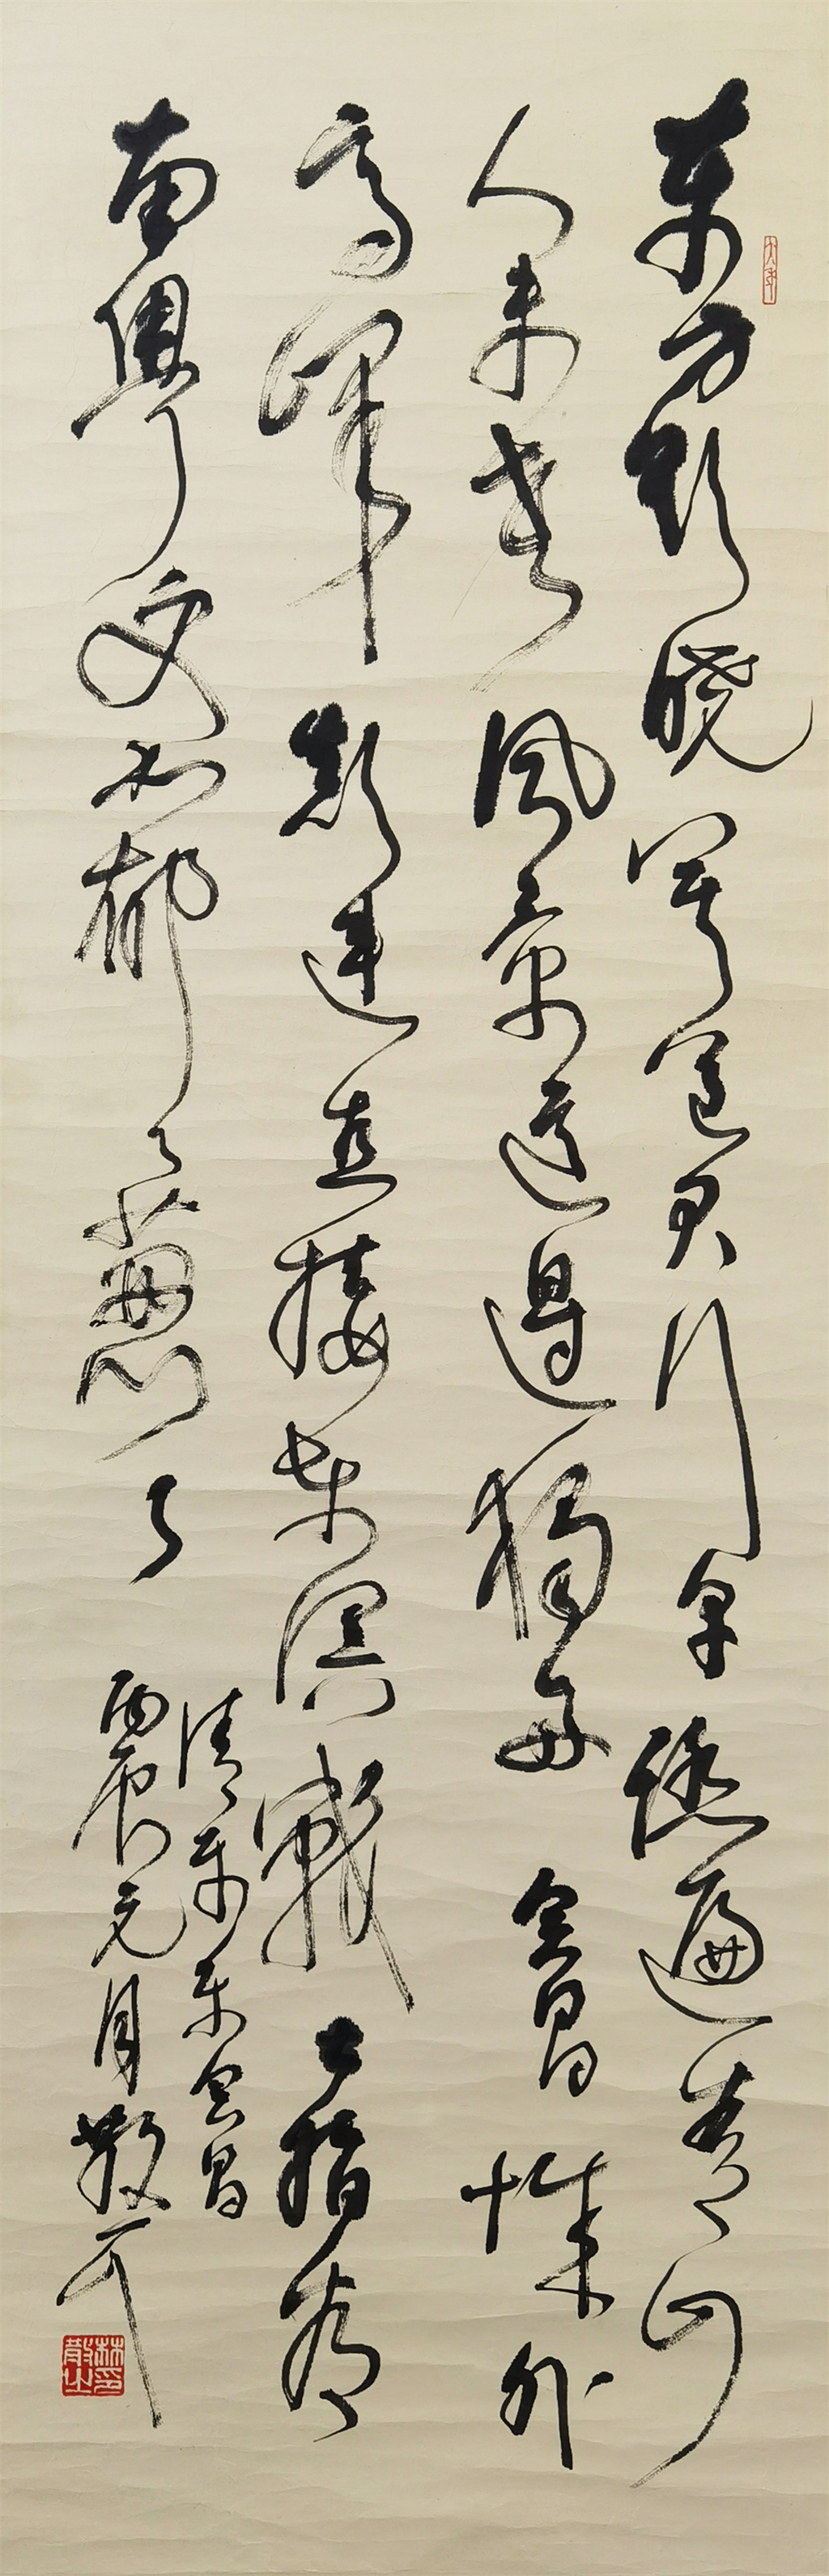 東方欲曉莫道君行早踏遍青山
人未老風景這邊獨好會昌城外
高峰顛連直接東溟戰士指看
南粵更加郁々蔥々
清平樂會昌
丙辰元月散耳
大年
林散之印